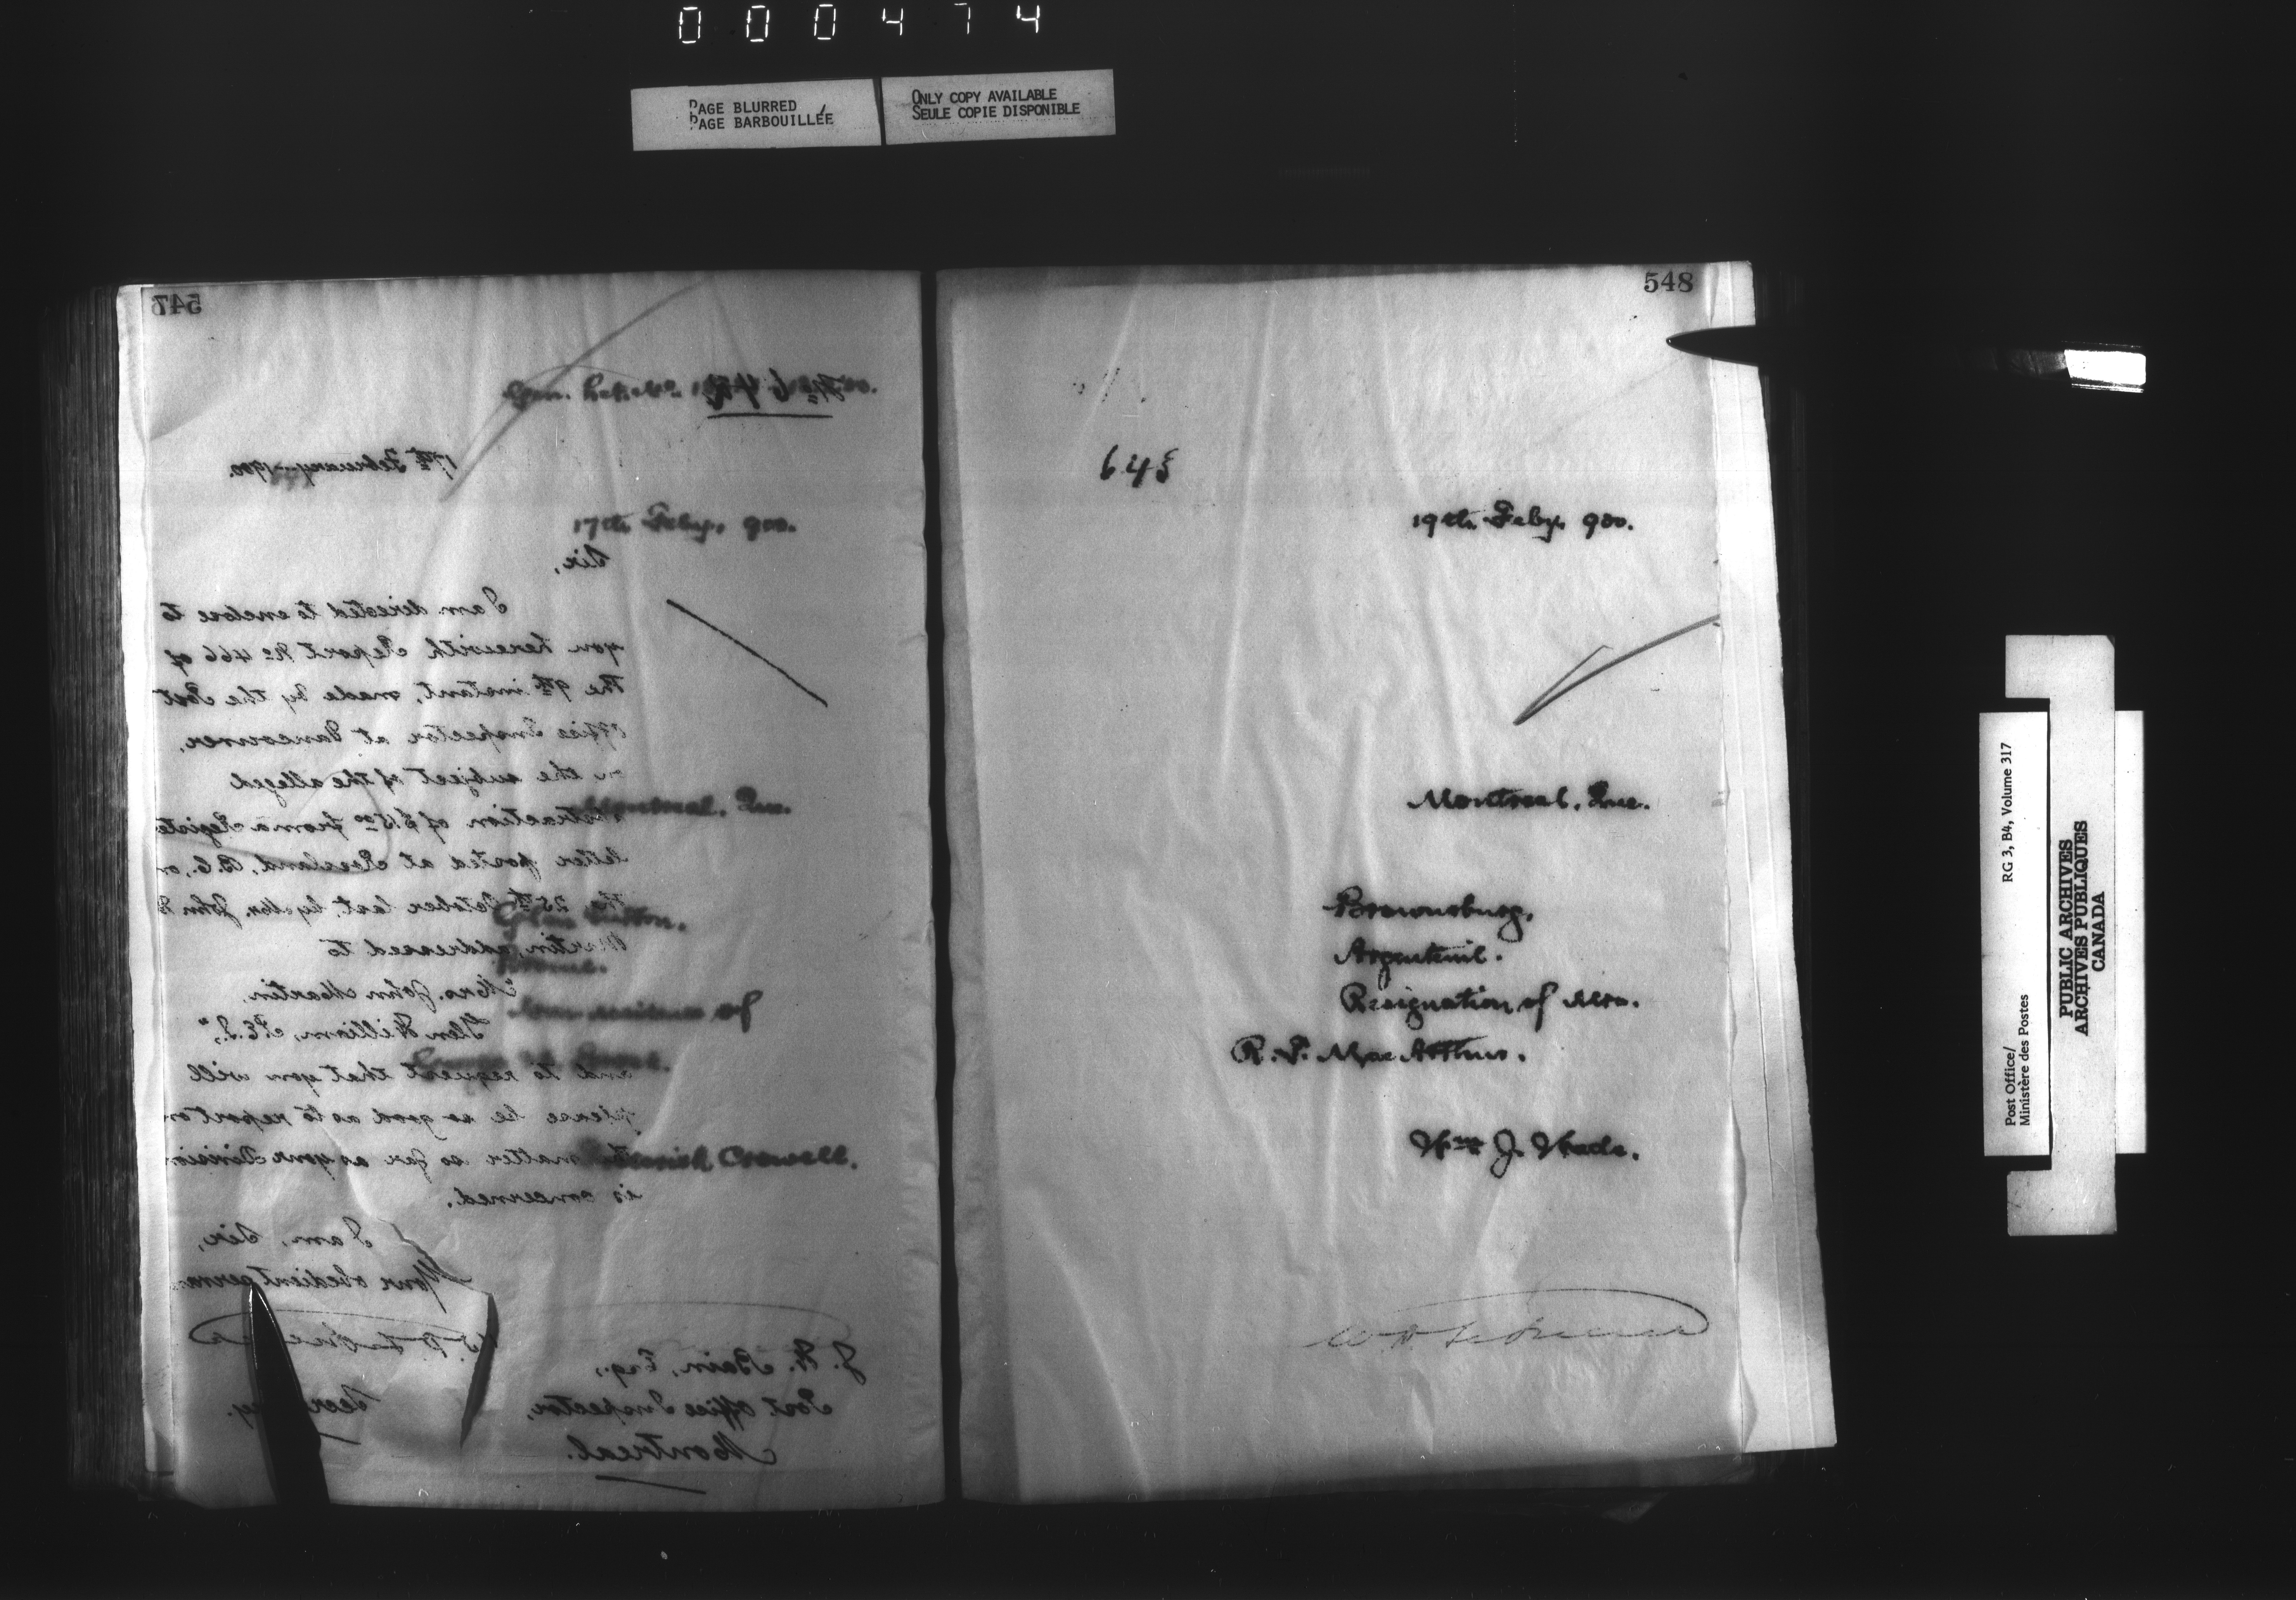 000474
PAGE BLURRED
PAGE BARBOUILLÉE
ONLY COPY AVAILABLE
SEULE COPIE DISPONIBLE
547
17th February 1900.
17th Feby. 900.
Sir,
I am directed to enclose to
you herewith Report No 466 of
the 9th instant, made by the Post
Office Inspector at Vancouver,
on the subject of the alleged
abstraction of $15.00 from a Registe
letter posted at Rossland, B.C., on
the 25th October last, by Mr. John
Martin, addressed to
"Mrs. John Martin
Glen William, P.E.I.",
and to request that you will
please be so good as to report on
the matter so far as your Division
is concerned.
I am, Sir,
Your obedient
Montreal. Que.
Sutton.
Brome.
of
Crowell.
J. H. Bain, Esq.,
Post Office Inspector,
Montreal.
548
19th Feby. 900.
Montreal, Que.
Brownsburg.
Argenteuil.
Resignation of Mrs.
R. P. MacArthur.
Wm J. Wade.
Post Office/
Ministère des Postes
RG 3, B4, Volume 317
PUBLIC ARCHIVES
ARCHIVES PUBLIQUES
CANADA